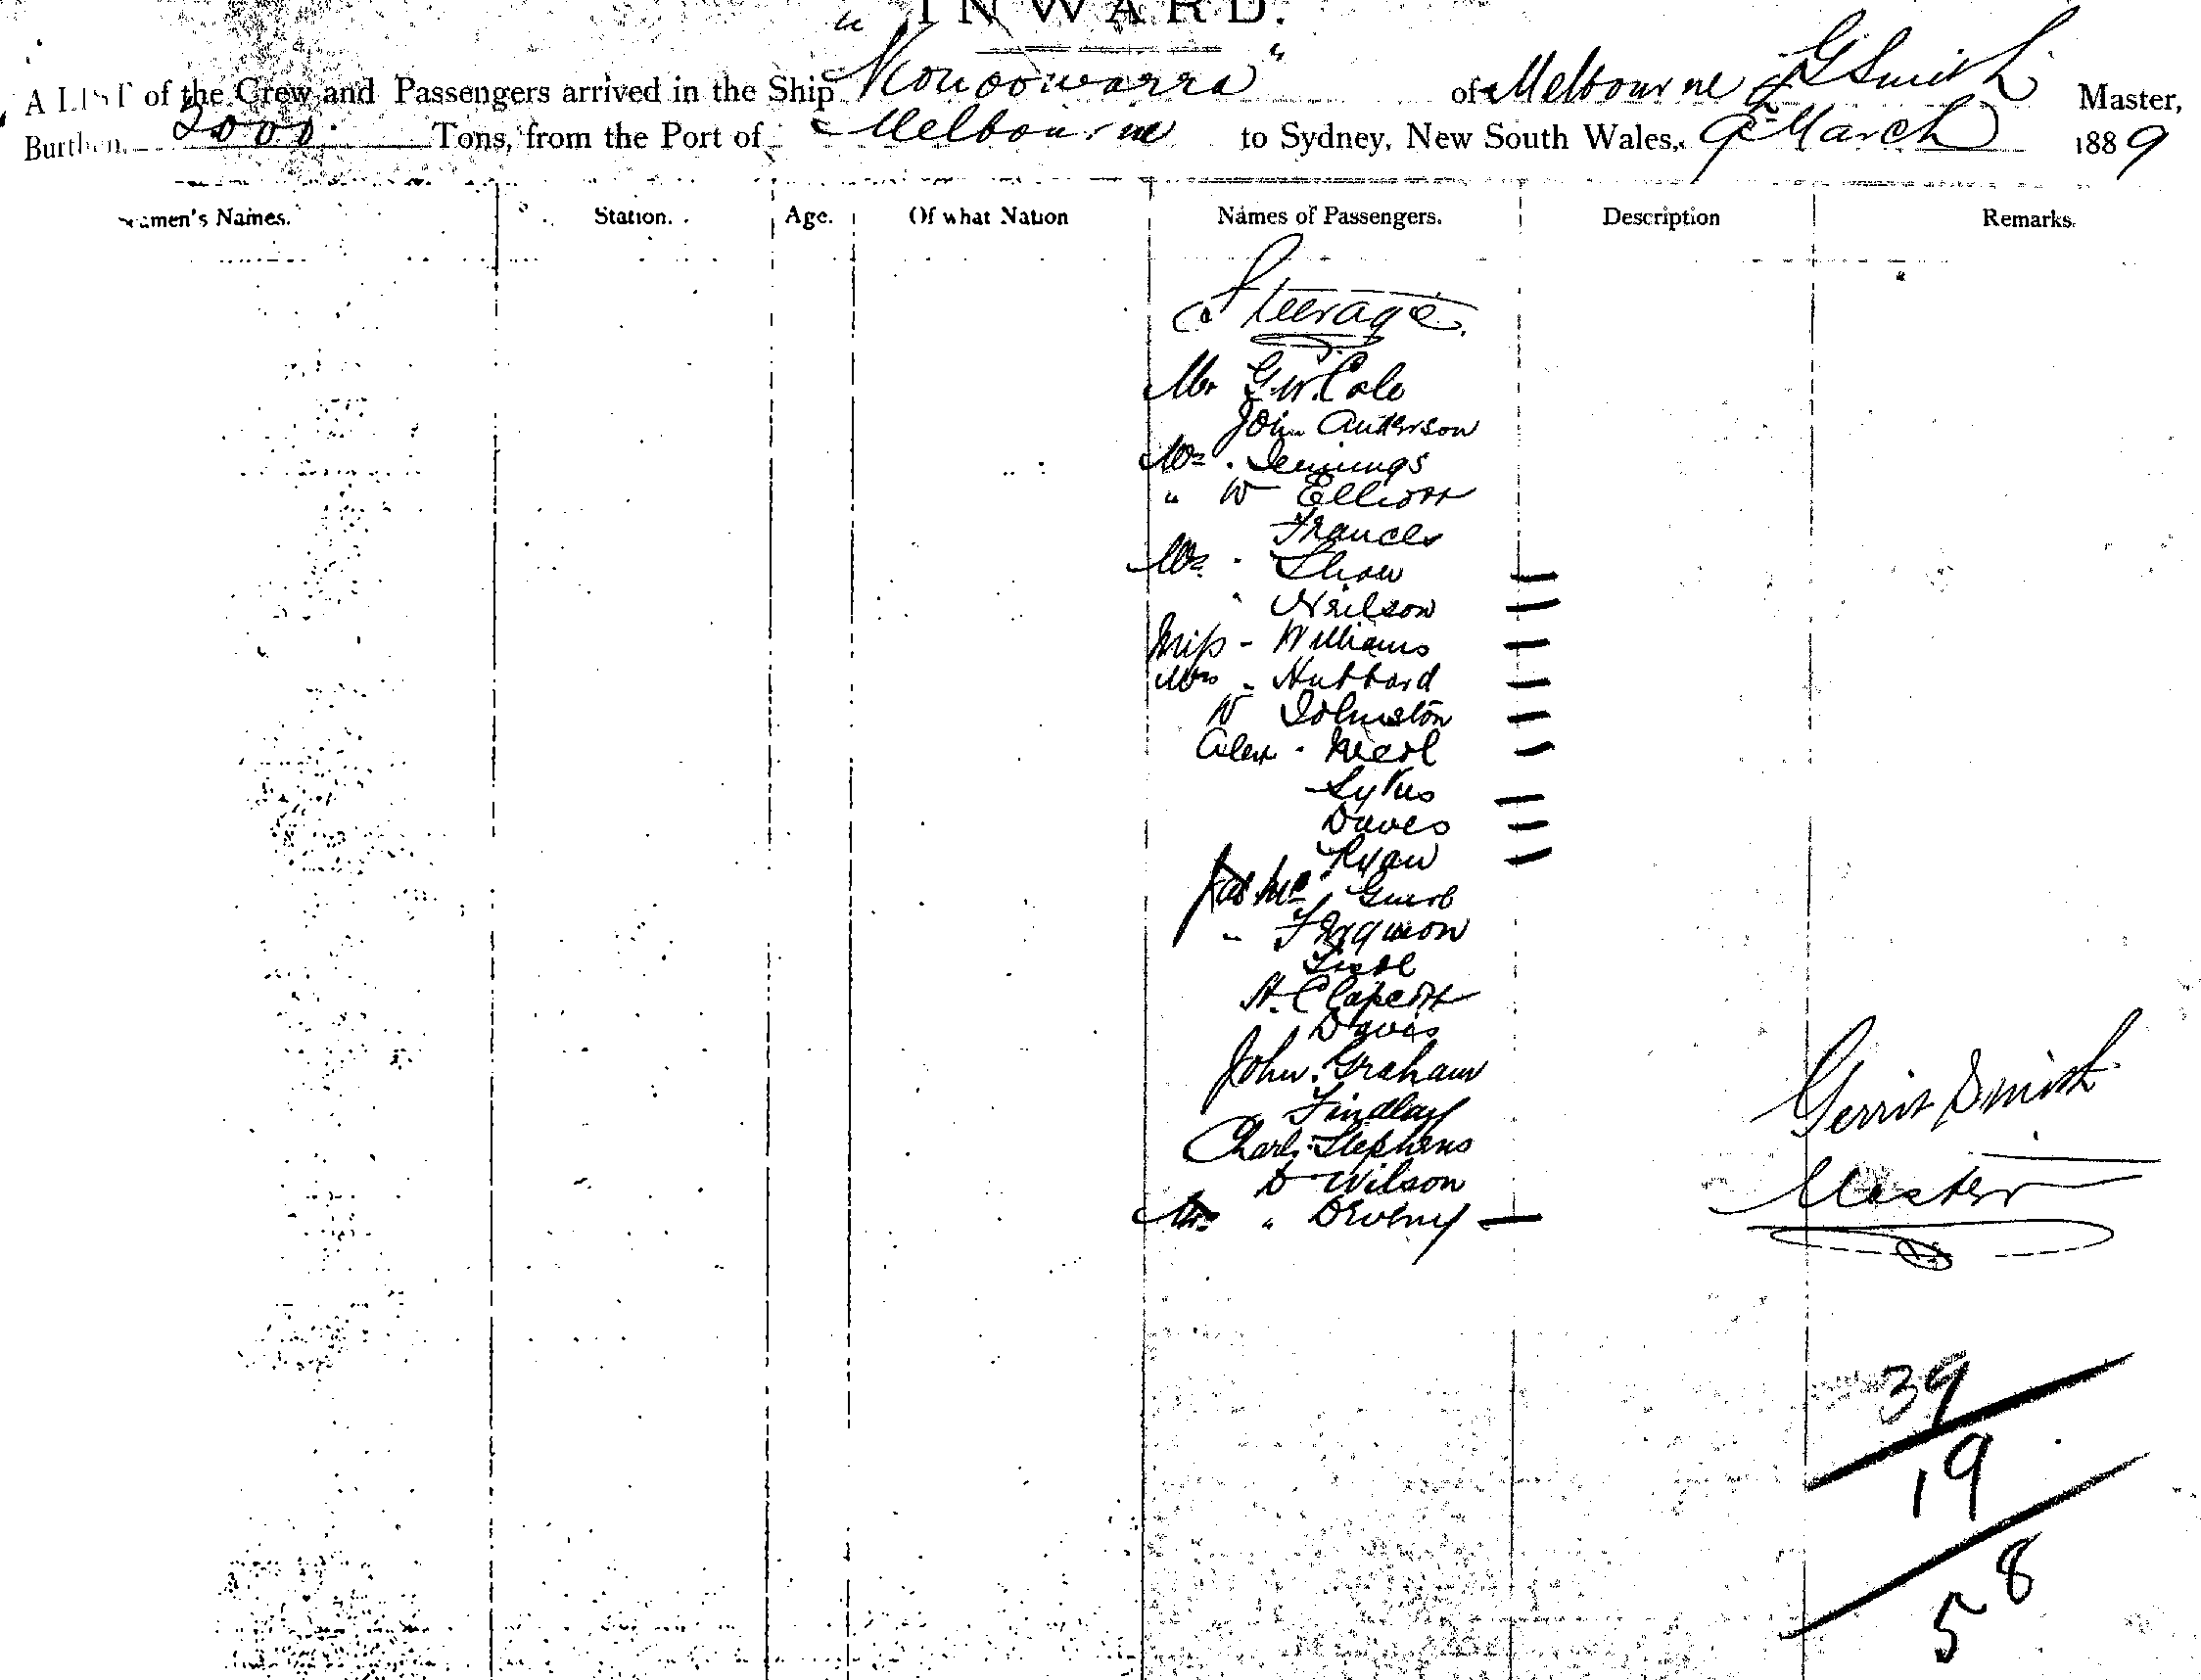 INWARD.
A LIST of the Crew and Passengers arrived in the Ship "Konoowarra" of Melbourne G Smith Master,
Burthen, 2000 Tons, from the Port of Melbourne to Sydney, New South Wales, 9th March 1889
Names. Station. Age. Of what Nation Names of Passengers. Description Remarks.
Steerage
Mr G.W. Cole
John Anderson
Mr . Jennings
" W Elliott
Frances
Shaw
" Neilson
Miss - Williams
Mrs . Hubbard
W Johnston
Alex .
Sykes
Daves
Ryan
Jas Mc
" Ferguson
H. Clapcott
Davis
John Graham
Findlay
Charls Stephens
D Wilson
" Deveny
Gerrit Smith
Master
39
19
58